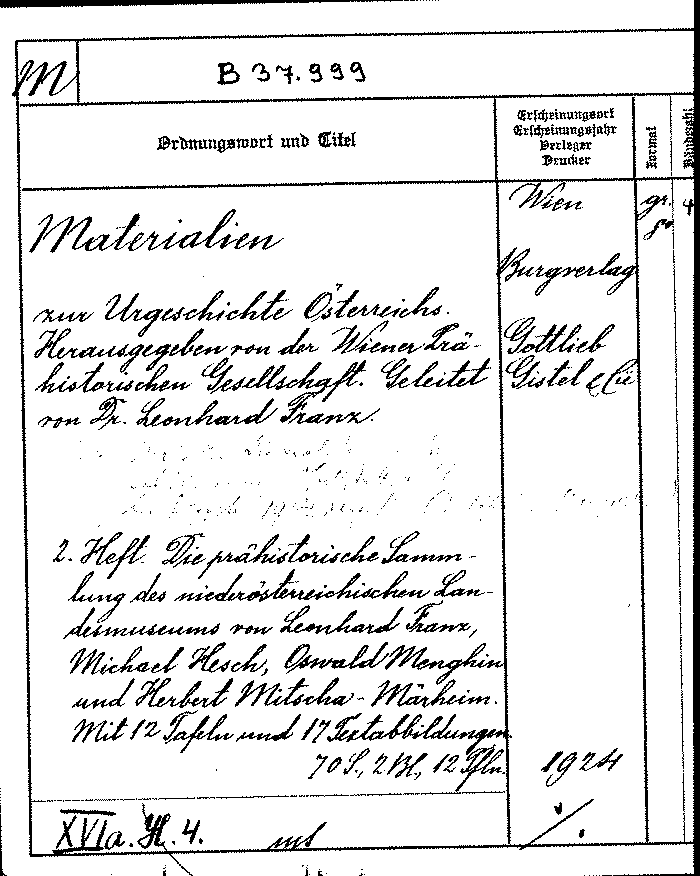 M
B 37.999
Ordnungswort und Titel
Erscheinungsort
Erscheinungsjahr
Verleger
Drucker
Format
Bändezahl
Materialien
Wien
gr.
8°
4
Burgverlag
zur Urgeschichte Österreichs.
Herausgegeben von der Wiener Prä-
Gottlieb
historischen Gesellschaft. Geleitet
Gistel & Cie
von Dr. Leonhard Franz.
2. Heft. Die prähistorische Samm-
lung des niederösterreichischen Lan-
desmuseums von Leonhard Franz,
Michael Hesch, Oswald Menghin
und Herbert Mitscha-Märheim.
Mit 12 Tafeln und 17 Textabbildungen.
70 S., 2 Bl., 12 Tfln.
1924
XVIa. H. 4.